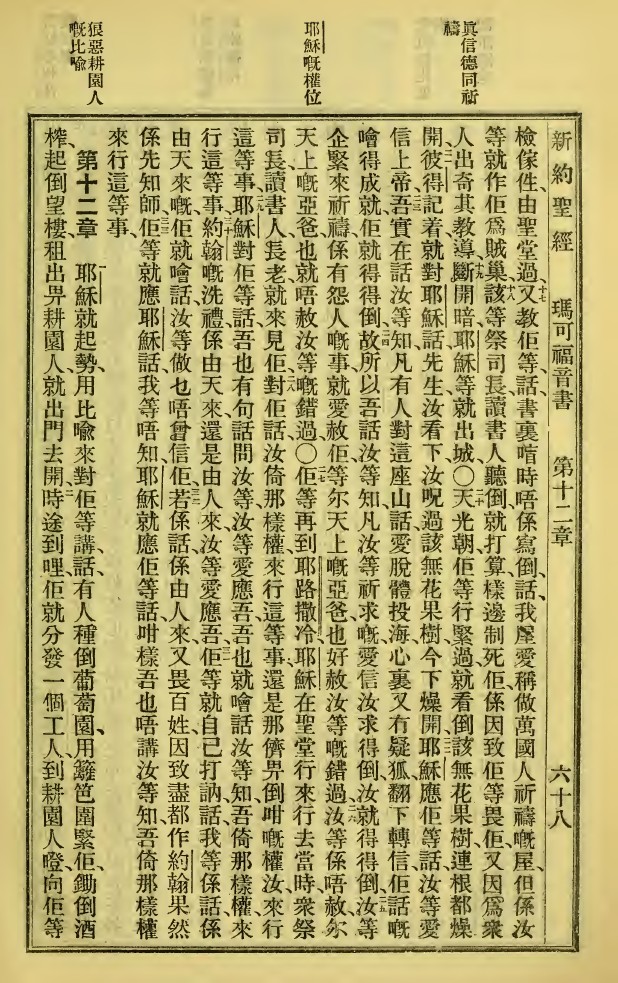 眞信德同祈
禱
耶穌嘅權位
狠惡耕園人
嘅比喻
新約聖經 瑪可福音書 第十二章 六十八
檢傢伙、由聖堂過、十七又教佢等、話書裏啃時唔係寫倒、話、我屋愛稱做萬國人祈禱嘅屋、但係汝
等就作佢爲賊巢、十八該等祭司長讀書人聽倒、就打算樣邊制死佢、係因致佢等畏佢、又因爲衆
人出奇其教導、十九斷開暗、耶穌等就出城〇二十天光朝佢等行緊過、就看倒該無花果樹、連根都燥
開、彼得記着、就對耶穌話、先生、汝看下、汝呪過該無花果樹、今下燥開、耶穌應佢等話、汝等愛
信上帝、吾實在話汝等知、凡有人對這座山話、愛脫體投海、心裏又有疑狐、翻下轉信佢話嘅
噲得成、就佢就得得倒、二四故所以吾話汝等知、凡汝等祈求嘅、愛信汝求得倒、汝就得得倒、二五汝等
企緊來祈禱、係有怨人嘅事、就愛赦佢等、尔天上嘅亞爸、也好赦汝等嘅錯過、二六汝等係唔赦、尔
天上嘅亞爸、也就唔赦汝等嘅錯過、〇二七佢等再到耶路撒冷、耶穌在聖堂行來行去、當時衆祭
司長、讀書人、長老、就來見佢、二八對佢話、汝倚那樣權、來行這等事、還是那儕畀倒咁嘅權汝、來行
這等事、二九耶穌對佢等話、吾也有句話問汝等、汝等愛應吾、吾也就噲話汝等知、吾倚那樣權、來
行這等事、三十約翰嘅洗禮、係由天來、還是由人來、汝等愛應吾、三一佢等就自己打訥、話、我等係話、係
由天來嘅、佢就噲話、汝等做乜唔曾信佢、三二若係話、係由人來、又畏百姓、因致盡都作約翰果然
係先知師、三三佢等就應耶穌話、我等唔知、耶穌就應佢等話、咁樣吾也唔講汝等知、吾倚那樣權
來行這等事、
第十二章 耶穌就起勢、用比喻來對佢等講、話、有人種倒葡萄園、用籬笆圍緊佢、鋤倒酒
榨、起倒望樓、租出畀耕園人、就出門去開、二時途到哩、佢就分發一個工人、到耕園人嗜、向佢等